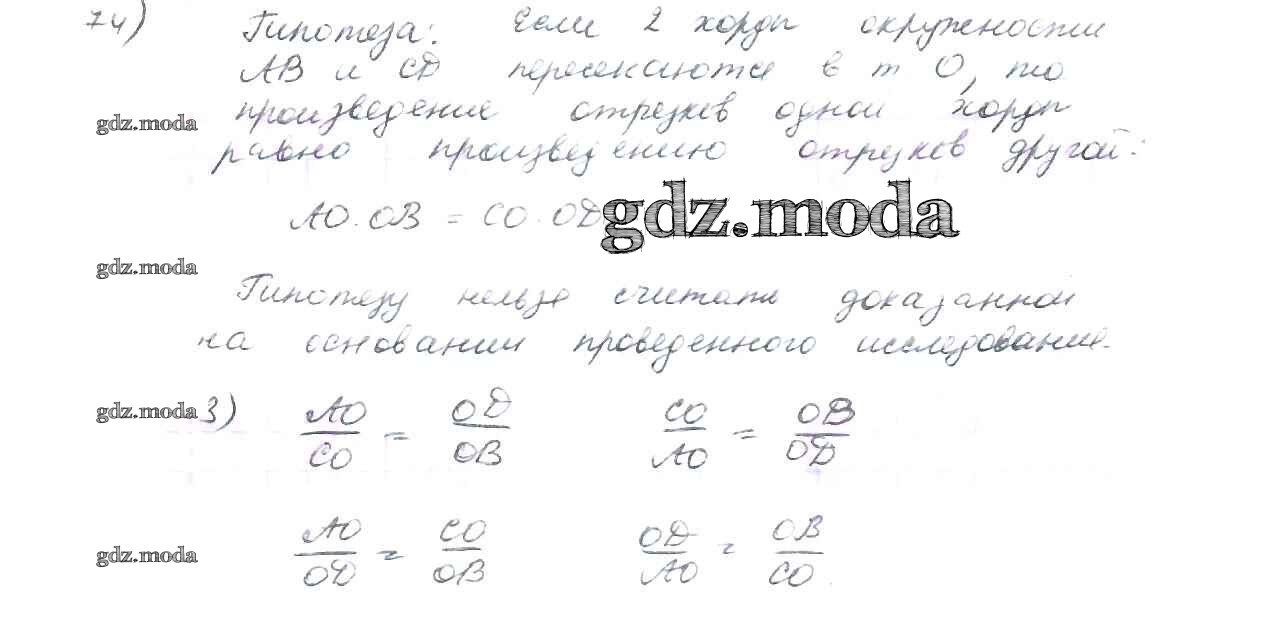 74) Гипотеза: Если 2 хорды окружности
AB и CD пересекаются в т O, то
gdz.moda произведение отрезков одной хорды
равно произведению отрезков другой:
AO·OB = CO·OD gdz.moda
gdz.moda Гипотезу нельзя считать доказанной
на основании проведенного исследования.
gdz.moda 3) AO/CO = OD/OB CO/AO = OB/OD
gdz.moda AO/OD = CO/OB OD/AO = OB/CO.